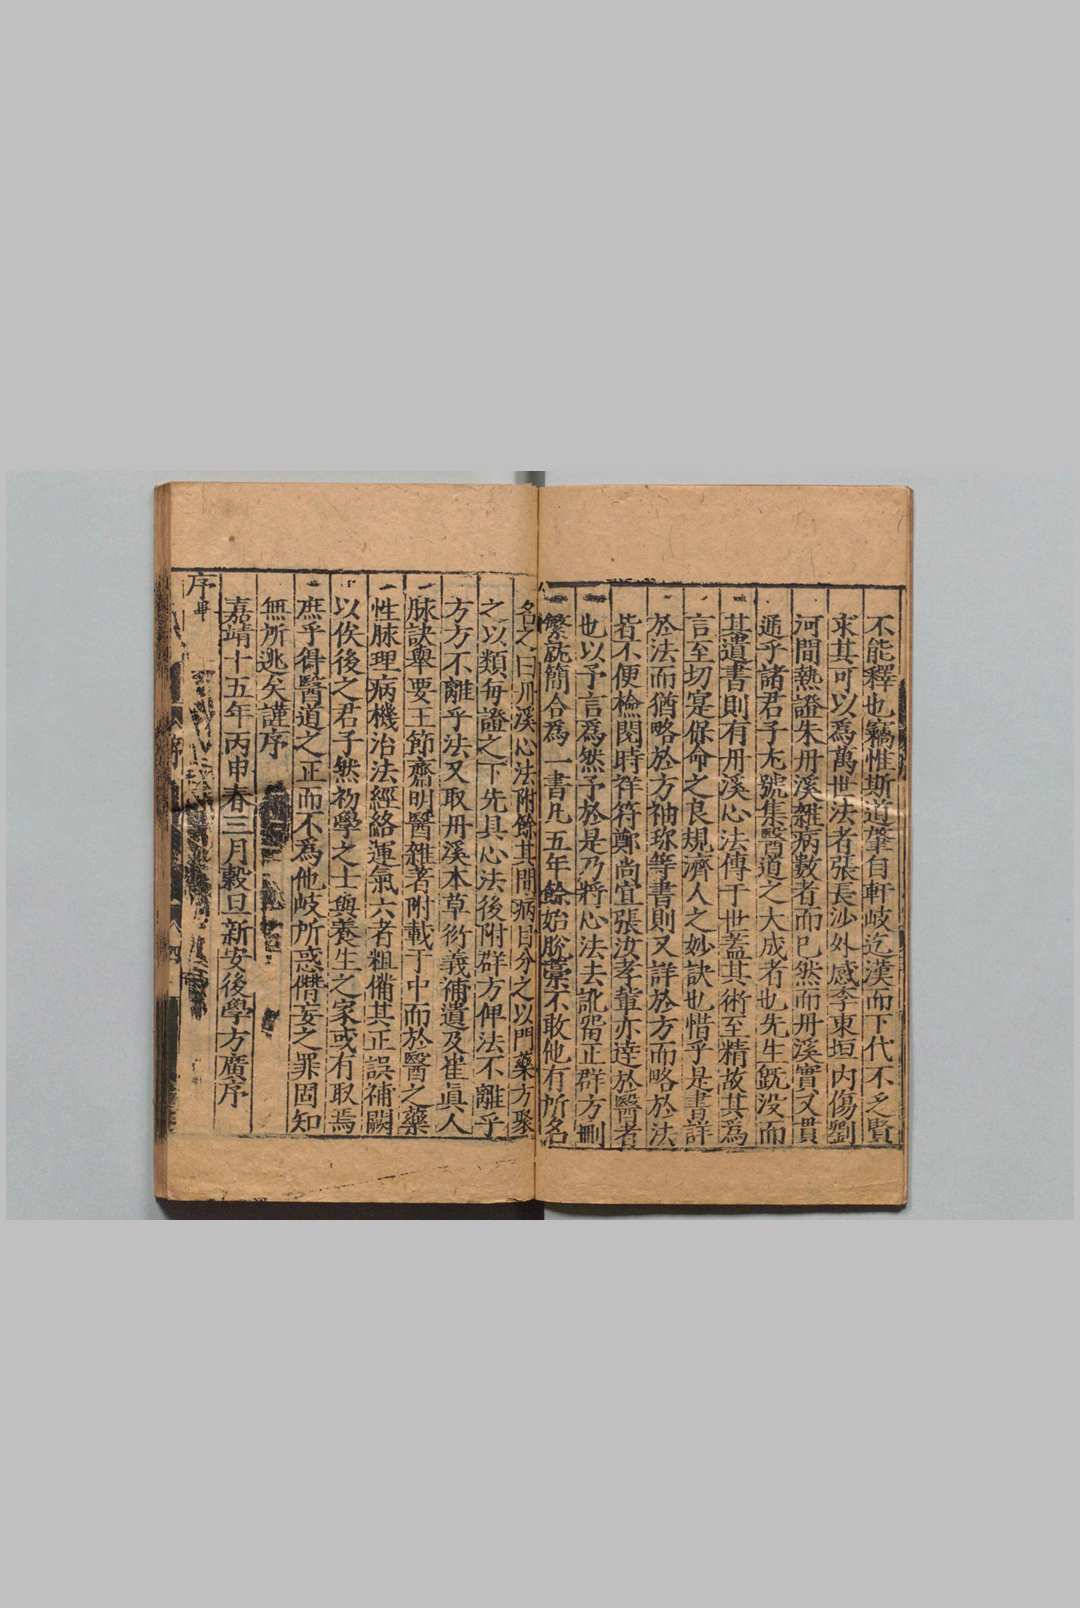 不能釋也竊惟斯道肇自軒岐迄漢而下代不乏賢
求其可以爲萬世法者張長沙外感李東垣内傷劉
河間熱證朱丹溪雜病數者而已然而丹溪實又貫
通乎諸君子尤號集醫道之大成者也先生旣没而
其遺書則有丹溪心法傳于世蓋其術至精故其爲
言至切寔保命之良規濟人之妙訣也惜乎是書詳
於法而猶略於方袖珎等書則又詳於方而略於法
皆不便檢閱時祥符鄭尚宜張汝孝軰亦逹於醫者
也以予言爲然予於是乃將心法去訛留正群方刪
繁就簡合爲一書凡五年餘始脫藁不敢他有所名
名之曰丹溪心法附餘其間病目分之以門藥方聚
之以類每證之下先具心法後附群方俾法不離乎
方方不離乎法又取丹溪本草衍義補遺及崔真人
脉訣舉要王節齋明醫雜著附載于中而於醫之藥
性脉理病機治法經絡運氣六者粗備其正誤補闕
以俟後之君子然初學之士與養生之家或有取焉
庶乎得醫道之正而不爲他岐所惑僭妄之罪固知
無所逃矣謹序
嘉靖十五年丙申春三月穀旦新安後學方廣序
序畢
序
四